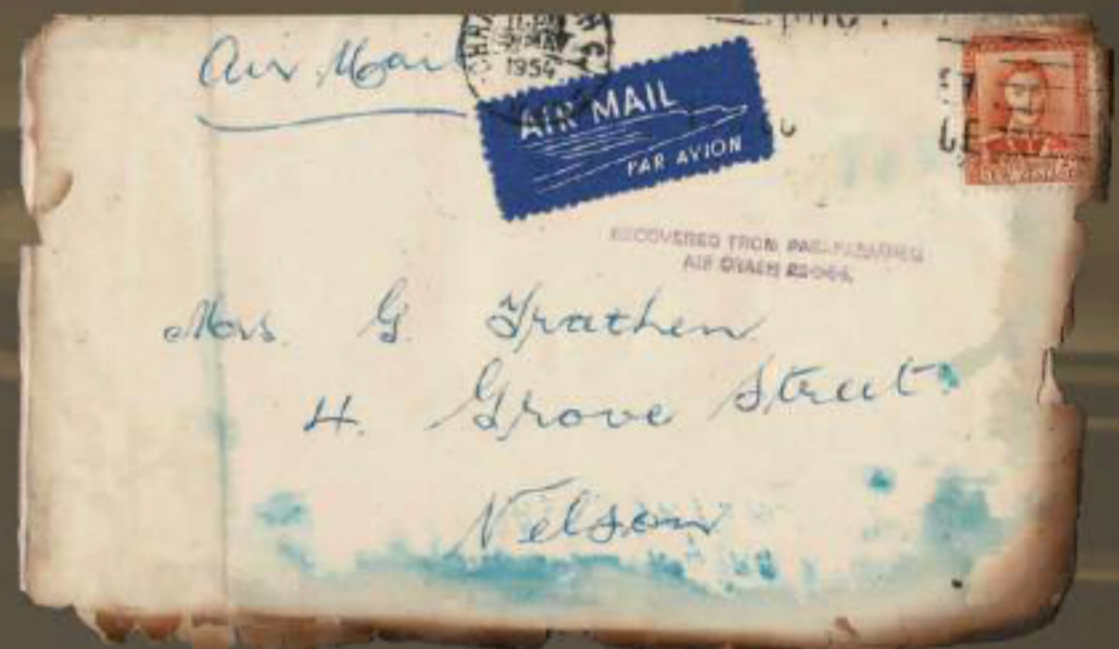 Air Mail
1954
AIR MAIL
PAR AVION
RECOVERED FROM
AIR CRASH
Mrs. G. Trathen
4. Grove Street.
Nelson